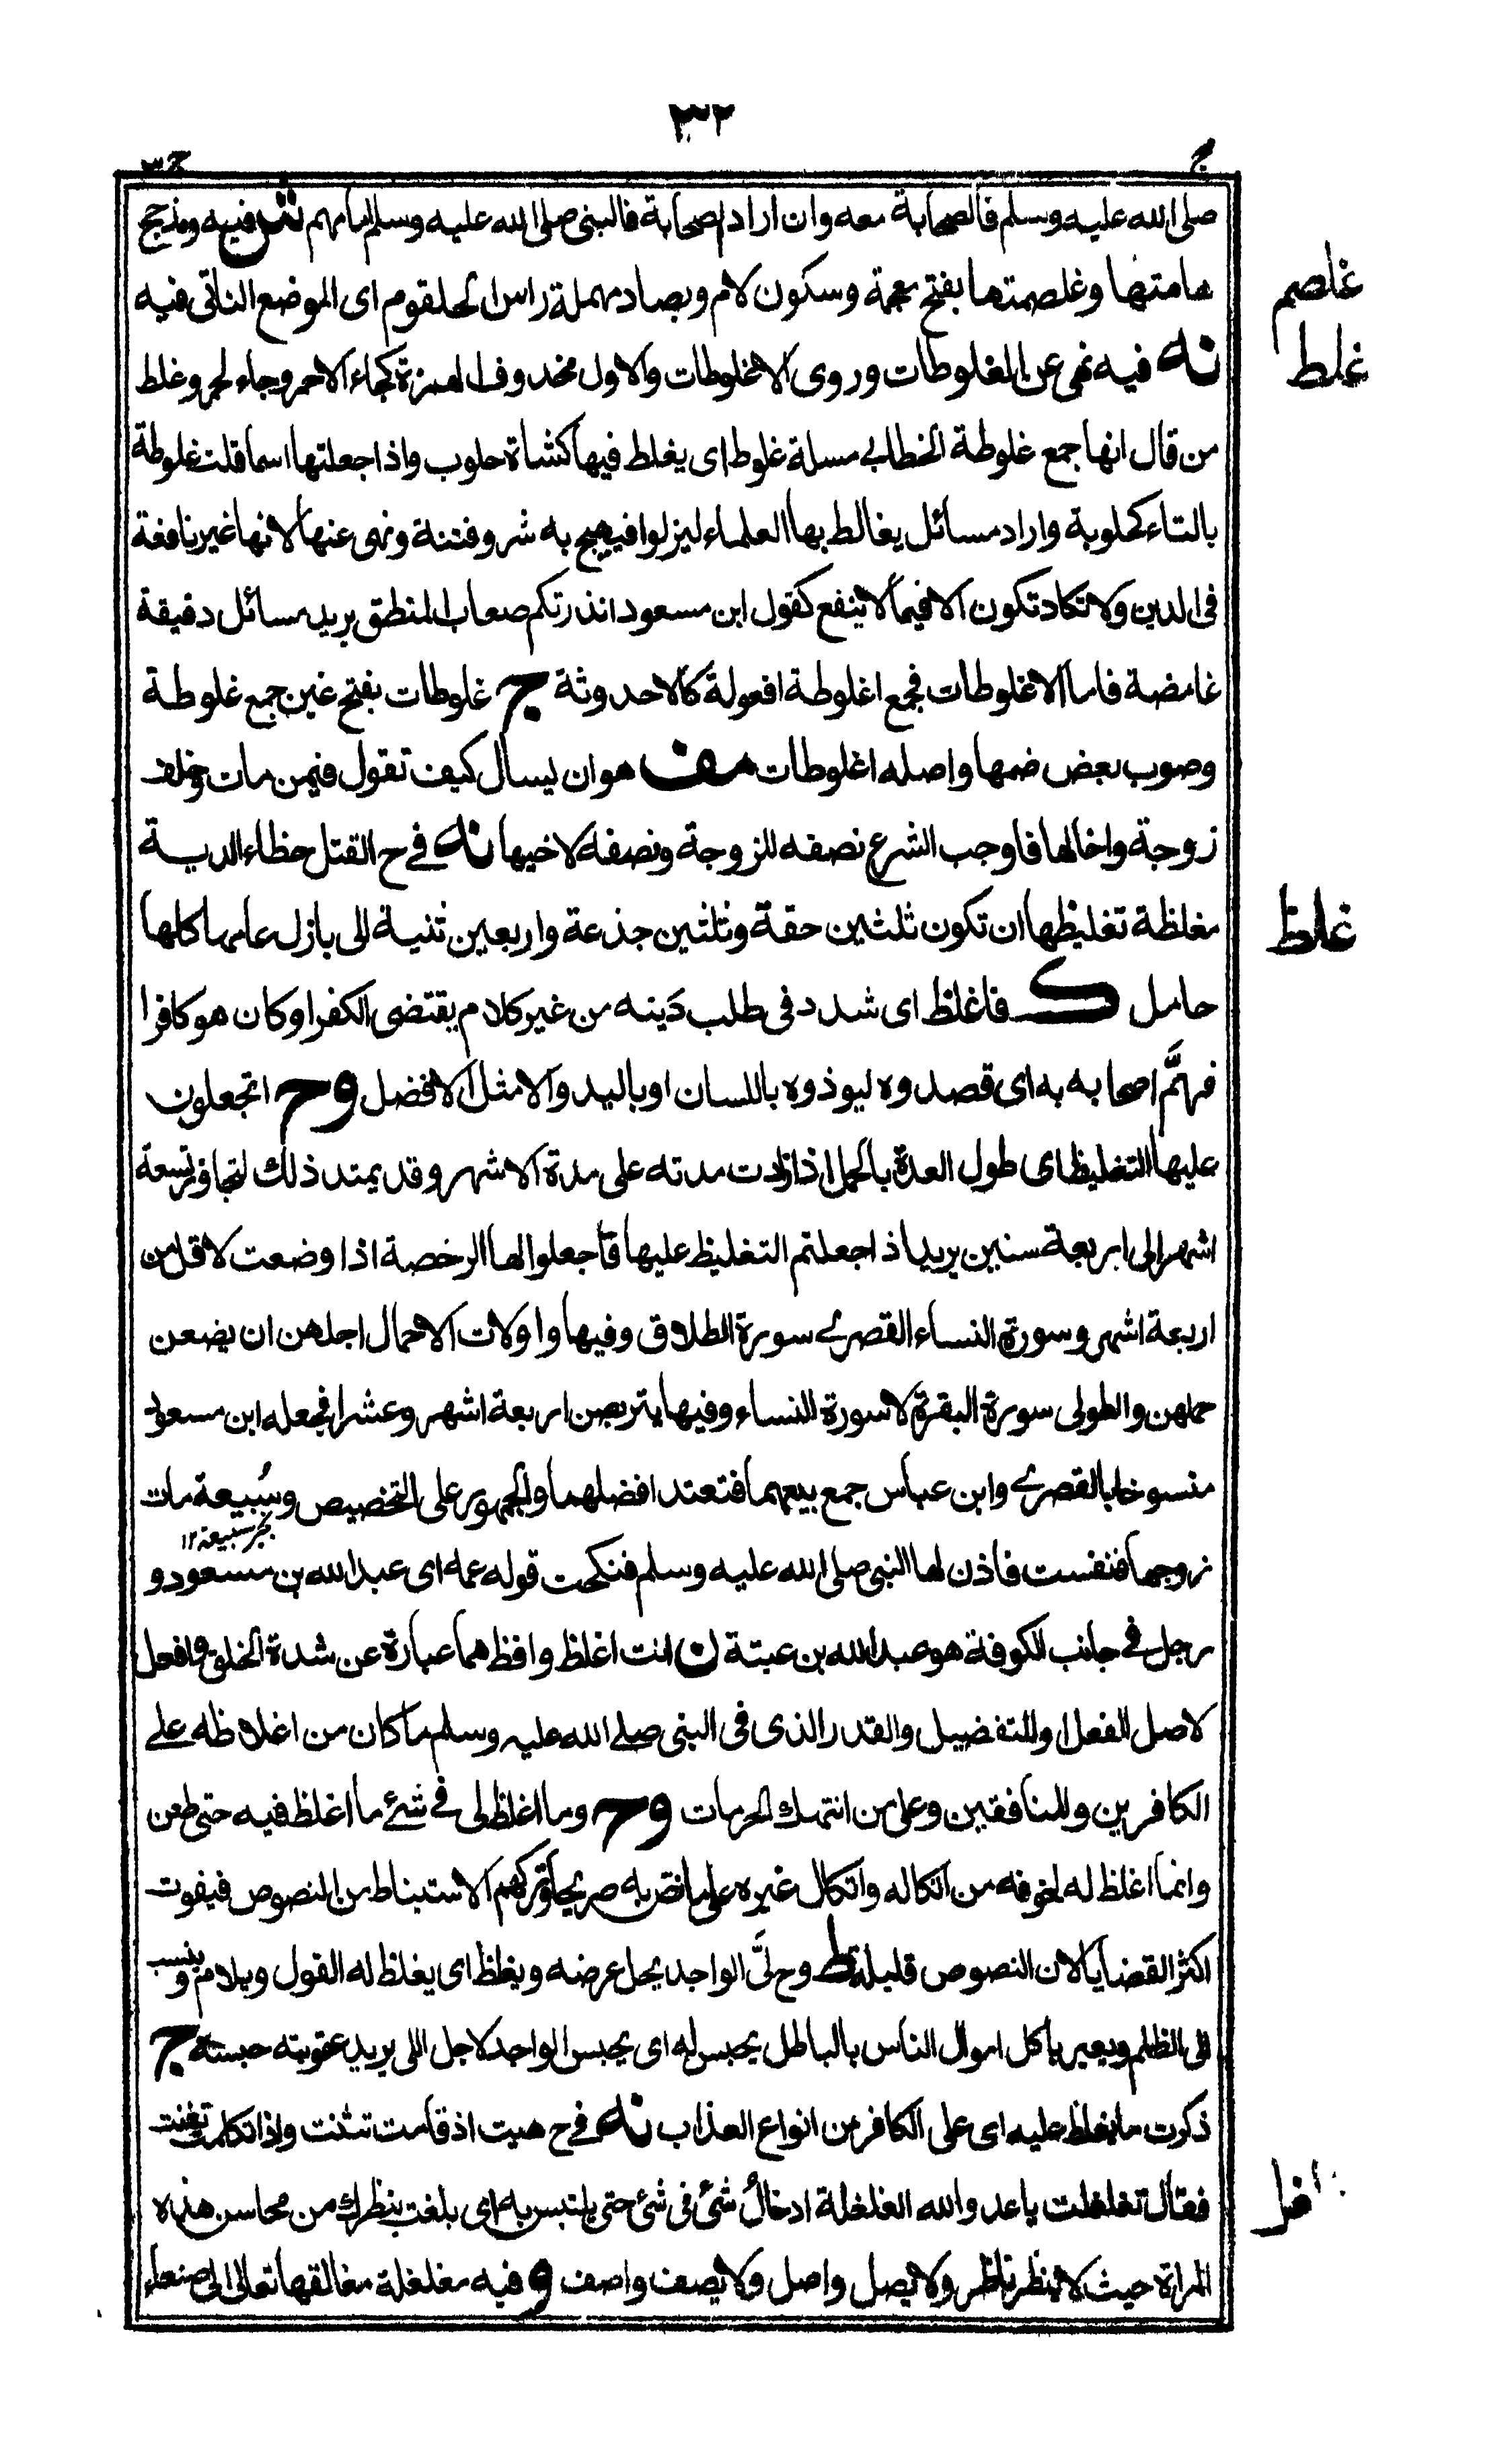 ٣٢
ج
ج ٣
صلى الله عليه وسلم فالصحابة معه وان اراد الصحابة فالنبى صلى الله عليه وسلم امامهم ش فيه ومذحج
هامتها وغلصمتها بفتح معجمة وسكون لام وبصاد مهملة راس الحلقوم اى الموضع الناتى فيه
غلصم
نه فيه نهى عن الغلوطات وروى الاغلوطات والاول محذوف الهمزة كجاء الاحمر وجاء لحمر وغلط
غلط
من قال انها جمع غلوطة الخطابى مسلة غلوط اى يغلط فيها كشاة حلوب واذا جعلتها اسما قلت غلوطة
بالتاء كحلوبة واراد مسائل يغالط بها العلماء ليزلوا فيهيج به شر وفتنة ونهى عنها لانها غير نافعة
فى الدين ولا تكاد تكون الا فيما لا ينفع كقول ابن مسعود انذرتكم صعاب المنطق يريد مسائل دقيقة
غامضة فاما الاغلوطات فجمع اغلوطة افعولة كالاحدوثة ج غلوطات بفتح غين جمع غلوطة
وصوب بعض ضمها واصله اغلوطات مف هو ان يسال كيف تقول فيمن مات وخلف
زوجة واخا لها فاوجب الشرع نصفه للزوجة ونصفه لاخيها نه فى ح القتل خطاء الدية
مغلظة تغليظها ان تكون ثلثين حقة وثلثين جذعة واربعين ثنية الى بازل عامها كلها
غلظ
حامل ك فاغلظ اى شدد فى طلب دَينه من غير كلام يقتضى الكفر او كان هو كافرا
فهمَّ اصحابه به اى قصدوه ليوذوه باللسان او باليد والامثل الافضل وح اتجعلون
عليها التغليظ اى طول العدة بالحمل اذا زادت مدته على مدة الاشهر وقد يمتد ذلك لتجاوز تسعة
اشهر الى اربعة سنين يريد اذ اجعلتم التغليظ عليها فاجعلوا لها الرخصة اذا وضعت لاقل من
اربعة اشهر وسورة النساء القصرى سورة الطلاق وفيها واولات الاحمال اجلهن ان يضعن
حملهن والطولى سورة البقرة لا سورة النساء وفيها يتربصن اربعة اشهر وعشرا فجعله ابن مسعود
منسوخا بالقصرى وابن عباس جمع بينهما فتعتد افضلهما والجمهور على التخصيص وسُبيعة مات
زوجها فنفست فاذن لها النبى صلى الله عليه وسلم فنكحت قوله عمه اى عبد الله بن مسعود و
رجل فى جانب الكوفة هو عبد الله بن عتبة ن انت اغلظ وافظ هما عبارة عن شدة الخلق وافعل
لاصل الفعل او للتفضيل والقدر الذى فى النبى صلى الله عليه وسلم ما كان من اغلاظه على
الكافرين والمنافقين وعلى من انتهك الحرمات وح وما اغلظ لى فى شئ ما اغلظ فيه حتى طعن
وانما اغلظ له لخوفه من اتكاله واتكال غيره على ما نص به صريحا وتركهم الاستنباط من النصوص فيفوت
اكثر القضايا لان النصوص قليلة ط وح لىَّ الواجد يحل عرضه ويغلظ اى يغلظ له القول ويلام وينسب
الى الظلم ويعير باكل اموال الناس بالباطل يحبس له اى يحبس الواجد لاجل اللى يريد عقوبته حبسته ج
ذكرت ما يغلظ عليه اى على الكافر من انواع العذاب نه فى ح هيت اذ قامت تثنت واذا تكلمت تغنت
فقال تغلغلت يا عدو الله الغلغلة ادخالُ شئ فى شئ حتى يلتبس به اى بلغت بنظرك من محاسن هذه
المراة حيث لا ينظر ناظر ولا يصل واصل ولا يصف واصف و فيه مغلغلة مغالقها تعالى الى صنعاء